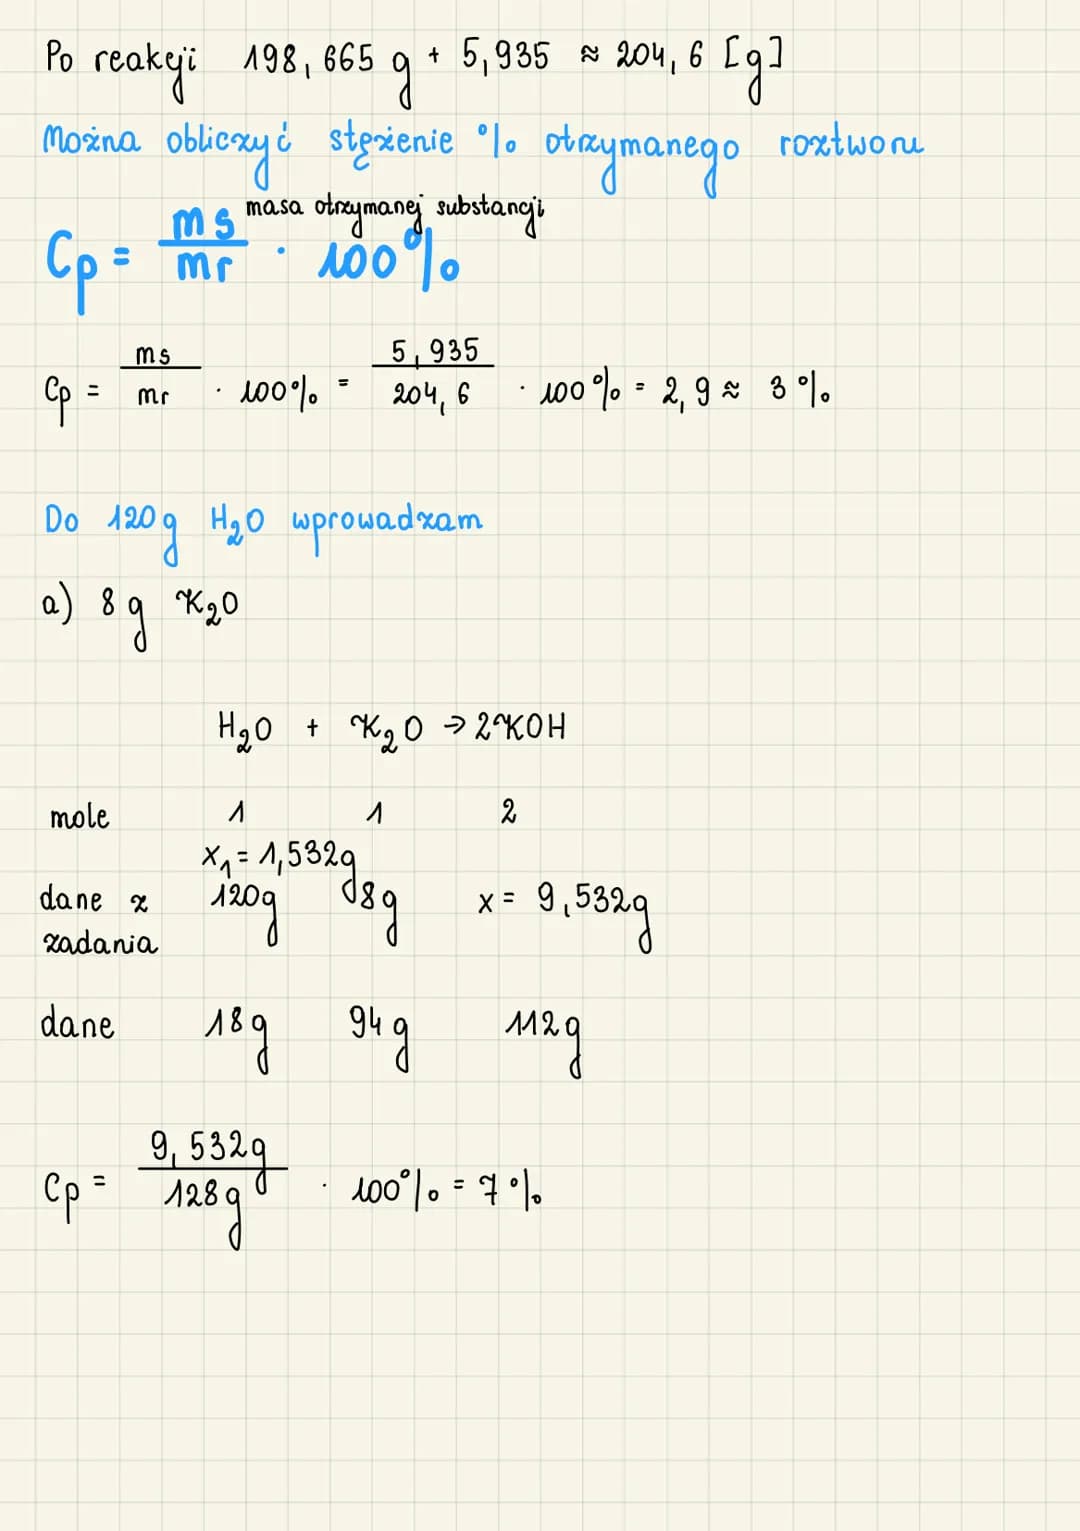 Po reakcji 198,665 g + 5,935 ≈ 204,6 [g]
Można obliczyć stężenie % otrzymanego roztworu
Cp = ms/mr · 100% masa otrzymanej substancji
Cp = ms/mr · 100% = 5,935/204,6 · 100% = 2,9 ≈ 3%
Do 120g H₂O wprowadzam
a) 8g K₂O
H₂O + K₂O → 2KOH
mole 1 1 2
x₁ = 1,532g
dane z 120g 8g x = 9,532g
zadania
dane 18g 94g 112g
Cp = 9,532g/128g · 100% = 7%